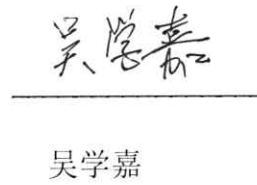 吴学嘉
吴学嘉